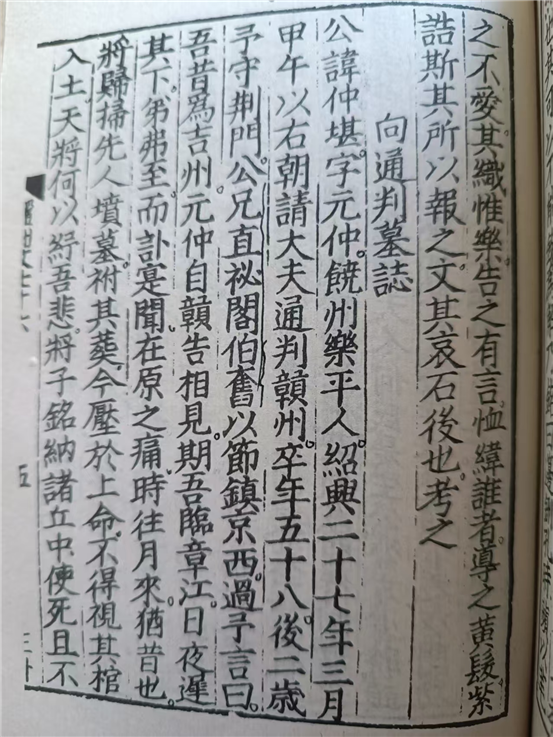 之不愛其織惟樂告之有言恤緯誰者導之黃髮紫
誥斯其所以報之文其哀石後也考之
向通判墓誌
公諱仲堪字元仲饒州樂平人紹興二十七年三月
甲午以右朝請大夫通判贛州卒年五十八後二歳
予守荆門公兄直祕閣伯奮以節鎮京西過予言曰
吾昔爲吉州元仲自贛告相見期吾臨章江日夜遲
其下弟弗至而訃寔聞在原之痛時往月來猶昔也
將歸掃先人墳墓祔其葬今壓於上命不得視其棺
入土天將何以紓吾悲將子銘納諸丘中使死且不
五